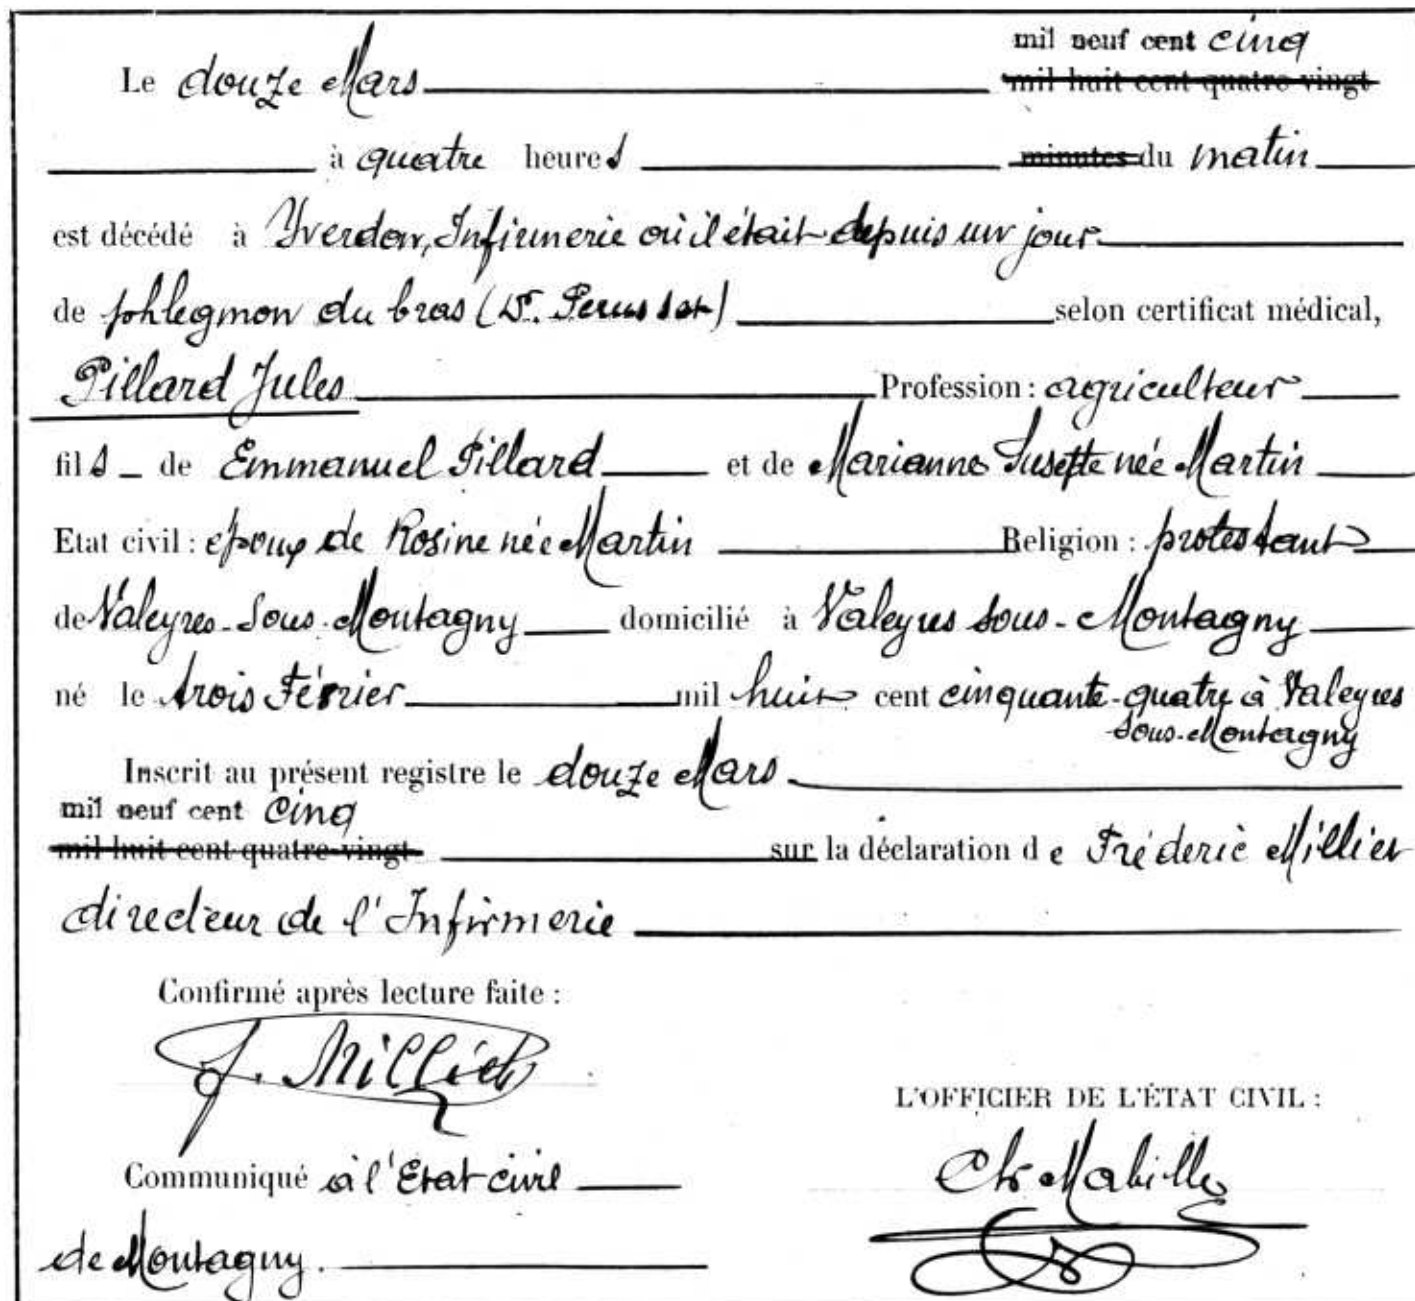 mil neuf cent cinq
Le douze Mars mil huit cent quatre-vingt
à quatre heures minutes du matin
est décédé à Yverdon, Infirmerie où il était depuis un jour
de phlegmon du bras (Dr. Perusset) selon certificat médical,
Pillard Jules Profession : agriculteur
fils de Emmanuel Pillard et de Marianne Susette née Martin
Etat civil : époux de Rosine née Martin Religion : protestant
de Valeyres-sous-Montagny domicilié à Valeyres sous-Montagny
né le trois Février mil huit cent cinquante-quatre à Valeyres
sous-Montagny
Inscrit au présent registre le douze Mars
mil neuf cent cinq
mil huit cent quatre-vingt sur la déclaration de Fréderic Milliet
directeur de l'Infirmerie
Confirmé après lecture faite :
F. Milliet
L'OFFICIER DE L'ÉTAT CIVIL :
Communiqué à l'Etat civil
Ch. Mabille
de Montagny.